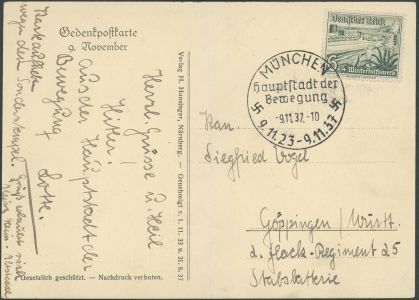 Gedenkpostkarte
9. November
Herzl. Grüsse u. Heil
Hitler!
aus der Hauptstadt der
Bewegung
Lotte.
Karte aufheben
wegen dem Sonderstempel.
Verlag H. Hunsinger, Nürnberg. — Genehmigt v. 1. 11. 33 u. 31. 8. 37
Gesetzlich geschützt. — Nachdruck verboten.
MÜNCHEN
Hauptstadt der
Bewegung
-9.11.37.-10
9.11.23-9.11.37
Deutsches Reich
6+4 Winterhilfswerk
Kan.
Siegfried Vogel
Göppingen / Württ.
2. Flack-Regiment 25
Stabsbatterie